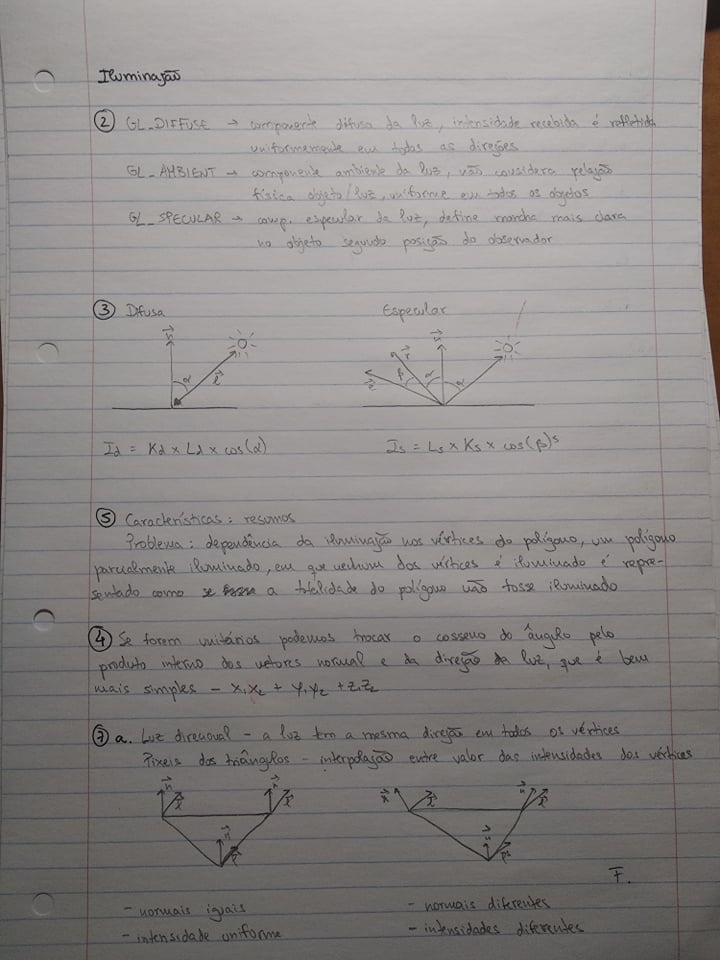 Iluminação
② GL_DIFFUSE → componente difusa da luz, intensidade recebida é refletida
uniformemente em todas as direções
GL_AMBIENT → componente ambiente da luz, não considera relação
física objeto/luz, uniforme em todos os objetos
GL_SPECULAR → comp. especular da luz, define mancha mais clara
no objeto segundo posição do observador
③ Difusa Especular
n⃗ α l⃗
v⃗ r⃗ β α n⃗ α
Id = Kd × Ld × cos(α) Is = Ls × Ks × cos(β)ˢ
⑤ Características: resumos
Problema: dependência da iluminação nos vértices do polígono, um polígono
parcialmente iluminado, em que nenhum dos vértices é iluminado é repre-
sentado como se a totalidade do polígono não fosse iluminado
④ Se forem unitários podemos trocar o cosseno do ângulo pelo
produto interno dos vetores normal e da direção da luz, que é bem
mais simples – x₁x₂ + y₁y₂ + z₁z₂
⑦ a. Luz direcional – a luz tem a mesma direção em todos os vértices
Pixeis dos triângulos – interpolação entre valor das intensidades dos vértices
n⃗ l⃗ n⃗ l⃗ n⃗ l⃗ n⃗ l⃗
n⃗ l⃗ n⃗ l⃗
F.
– normais iguais – normais diferentes
– intensidade uniforme – intensidades diferentes